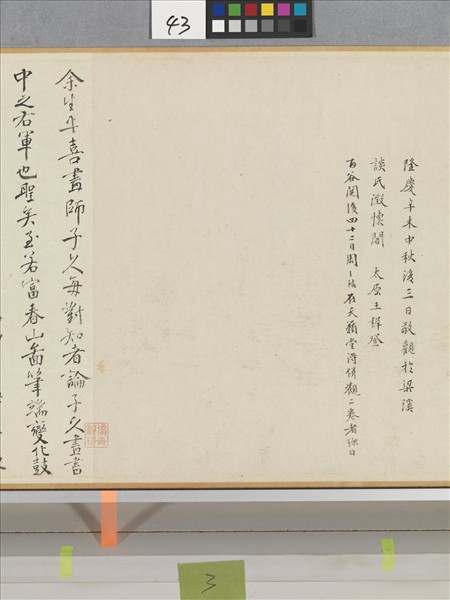 43
隆慶辛未中秋後三日敬觀於梁溪
談氏澂懷閣 太原王穉登
百谷閱後四十二日周天球在天籟堂得併觀二卷者弥日
余生平喜畫師子久每對知者論子久畫書
中之右軍也聖矣至若富春山圖筆端變化鼓
3